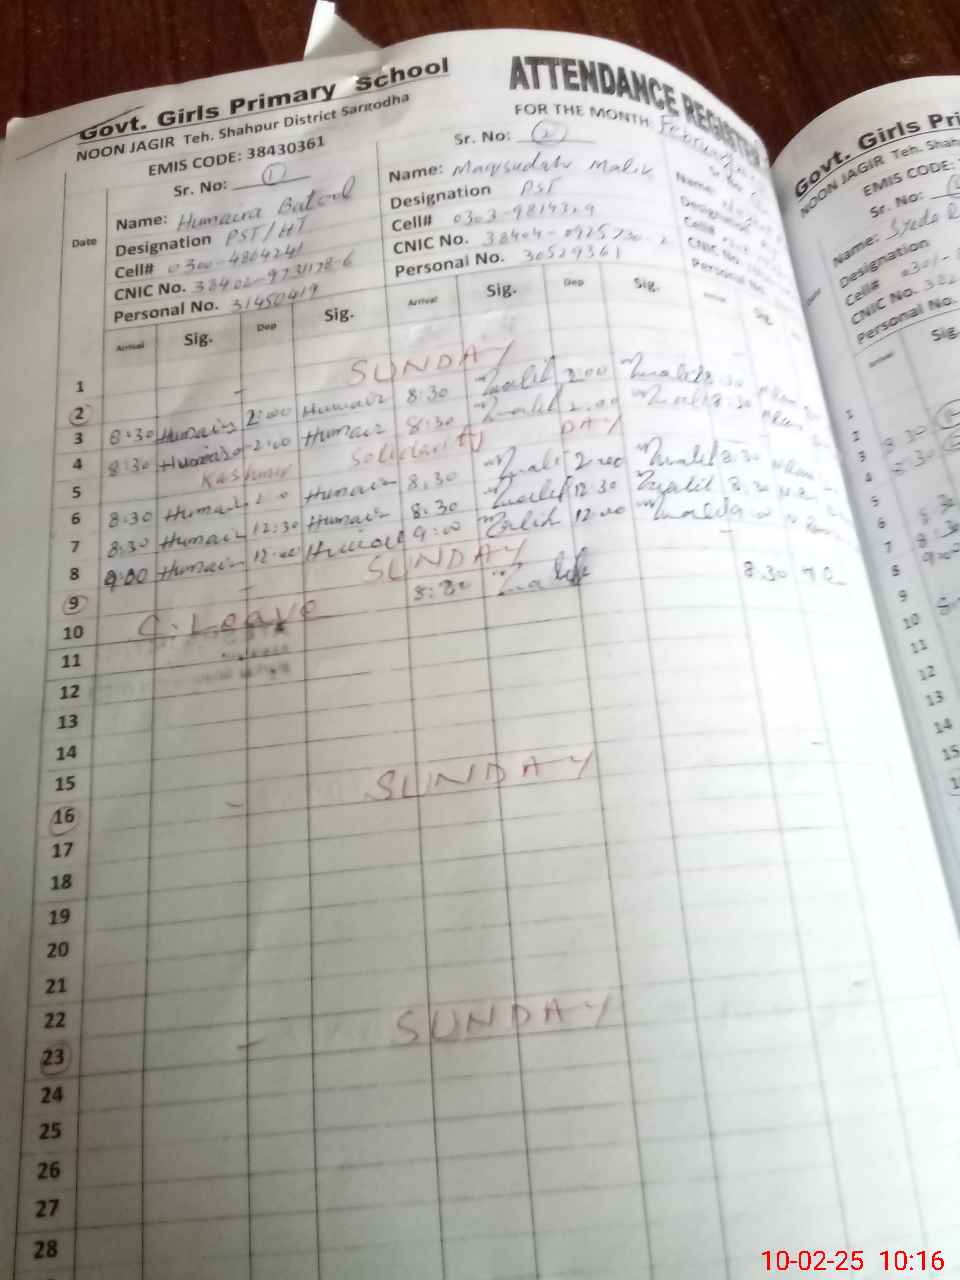 Govt. Girls Primary School
NOON JAGIR Teh. Shahpur District Sargodha
EMIS CODE: 38430361
ATTENDANCE REGISTER
FOR THE MONTH February
Date
Sr. No: 1
Name: Humaira Batool
Designation PST/HT
Cell# 0300-4864241
CNIC No. 38402-9731178-6
Personal No. 31450419
Sr. No: 2
Name: Maqsudah Malik
Designation PST
Cell# 0303-9814329
CNIC No. 38404-0925730-2
Personal No. 30529361
Sr. No:
Name:
Designation
Cell#
CNIC No.
Personal No.
Arrival Sig. Dep Sig. Arrival Sig. Dep Sig. Arrival Sig.
1
2 SUNDAY
3 8:30 Humaira 2:00 Humaira 8:30 Malik 2:00 Malik 8:30
4 8:30 Humaira 2:00 Humaira 8:30 Malik 2:00 Malik 8:30
5 Kashmir Solidarity DAY
6 8:30 Humaira Humaira 8:30 Malik 2:00 Malik 8:30
7 8:30 Humaira 12:30 Humaira 8:30 Malik 12:30 Malik 8:30
8 9:00 Humaira 12:00 Humaira 9:00 Malik 12:00 Malik 9:00
9 SUNDAY
10 C. Leave 8:30 Malik 8:30
11
12
13
14
15
16 SUNDAY
17
18
19
20
21
22
23 SUNDAY
24
25
26
27
28
Govt. Girls Pri
NOON JAGIR Teh. Shah
EMIS CODE:
Sr. No:
Name: Syeda R
Designation
Cell# 0301-
CNIC No. 382
Personal No.
Arrival Sig
1
2
3 8:30
4 8:30
5
6 8:30
7 8:30
8 9:00
9
10
11
12
13
14
15
10-02-25 10:16